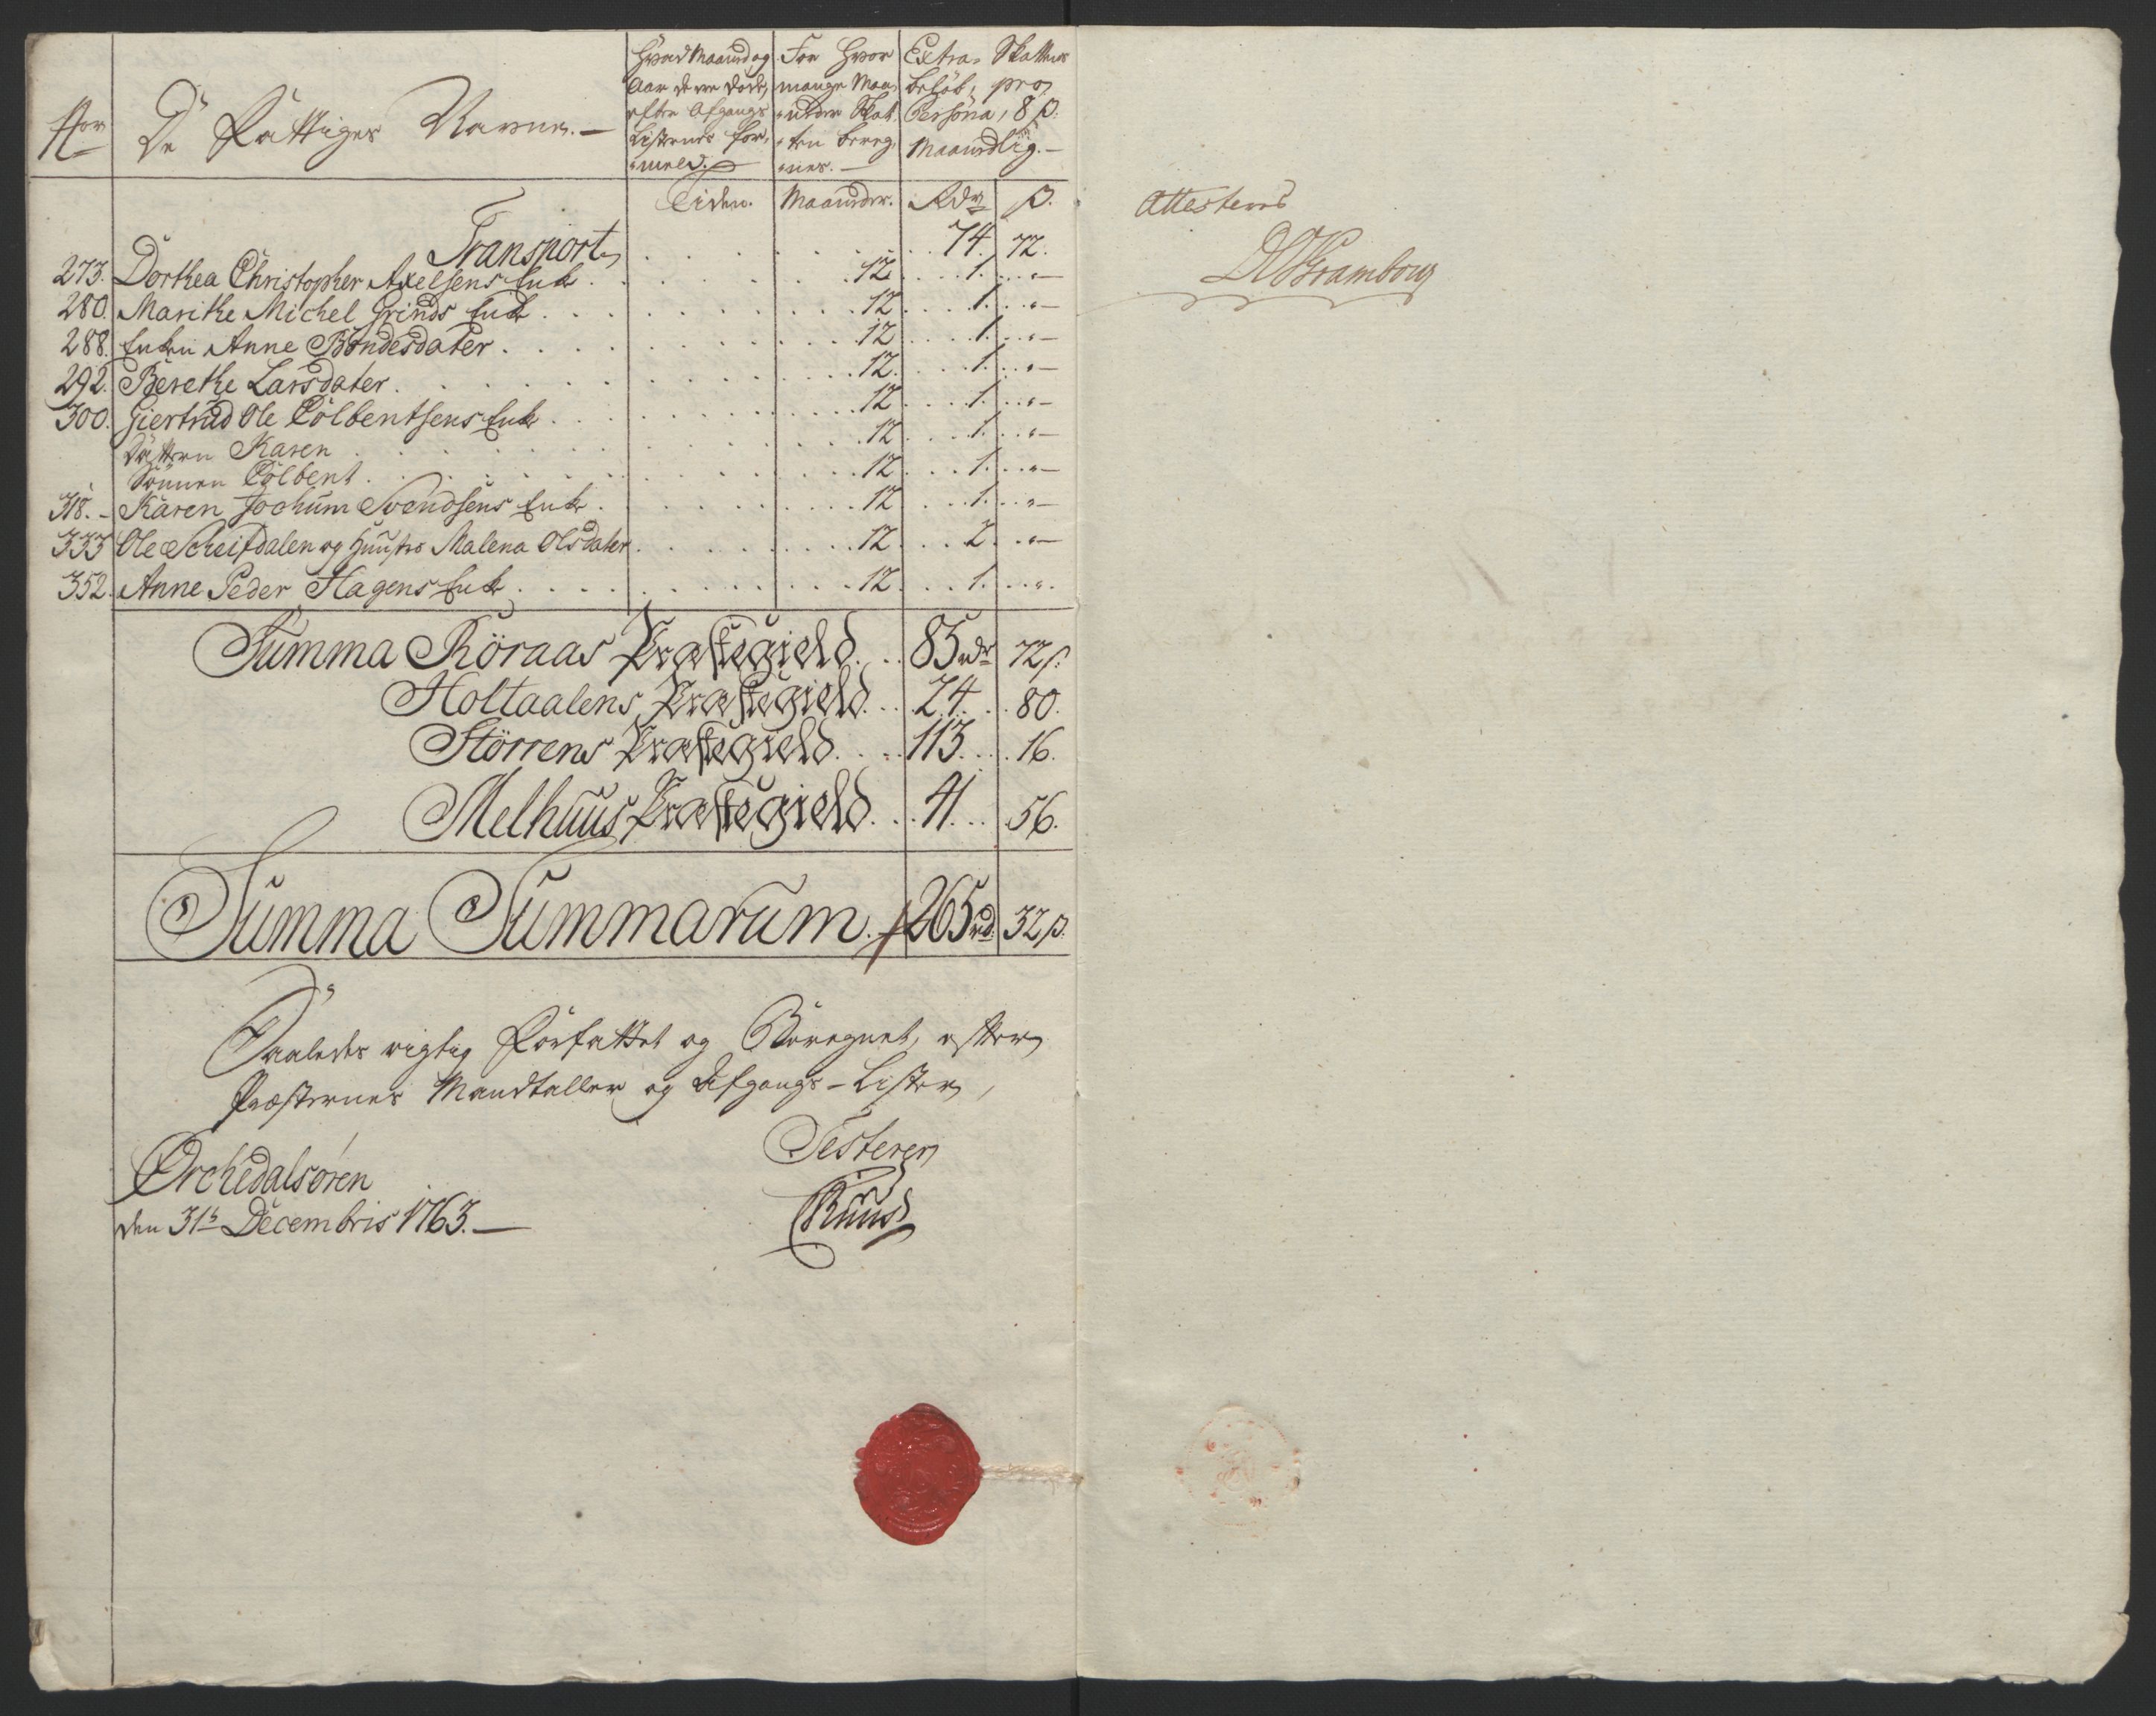 No. De Fattiges Navne.— Hvad Maaned og Aar de ere døde, efter Afgangs Listernes formeld.— For Hvor mange Maaneder Skatten bereg,nes.— Extra-Skattens beløb, pro Persona, 8 β: Maanedlig.—
Tiden. Maaneder. Rdr β.
Transport 74. 72.
273. Dorthea Christopher Axelsens Enke . . 12 . . 1. . . "—
280. Marithe Michel Grinds Enke . . 12 . . 1. . . "—
288. Enken Anne Bøndesdater . . 12 . . 1. . . "—
292. Berethe Larsdater . . 12. . . 1. . . "—
300. Giertrud Ole Colbentsens Enke . . 12 . . 1. . . "—
Datteren Karen . . 12 . . 1. . . "—
Sönnen Colbent . . 12 . . 1. . . "—
318. – Karen Jochum Svendsens Enke . . 12 . . 1. . . "—
333 Ole Scheifdalen og Hustro Malena Olsdater . . 12 . . 2. . . "—
352. Anne Peder Hagens Enke . . 12 . . 1. . . ".
Summa Röraas Præstegield . . 85 rdr 72 β.
Holtaalens Præstegield . . 24 . . 80.
Störrens Præstegield . . 113 . . 16.
Melhuus Præstegield . . 41 . . 56.
Summa Summarum . 265 rd. 32 β.
Saaledes rigtig Forfattet og Beregnet, efter
Præsternes Mandtaller og Afgangs-Lister,
Testerer
Ørchedalsøren
den 31te Decembris 1763.—
Attesteres